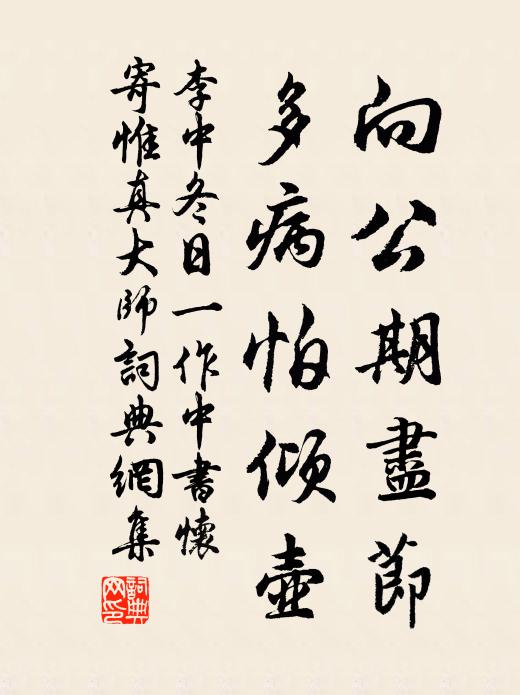 向公期盡節
多病怕傾壺
李中冬日一作中書懷
寄惟真大師詞典網集
詞典
网印